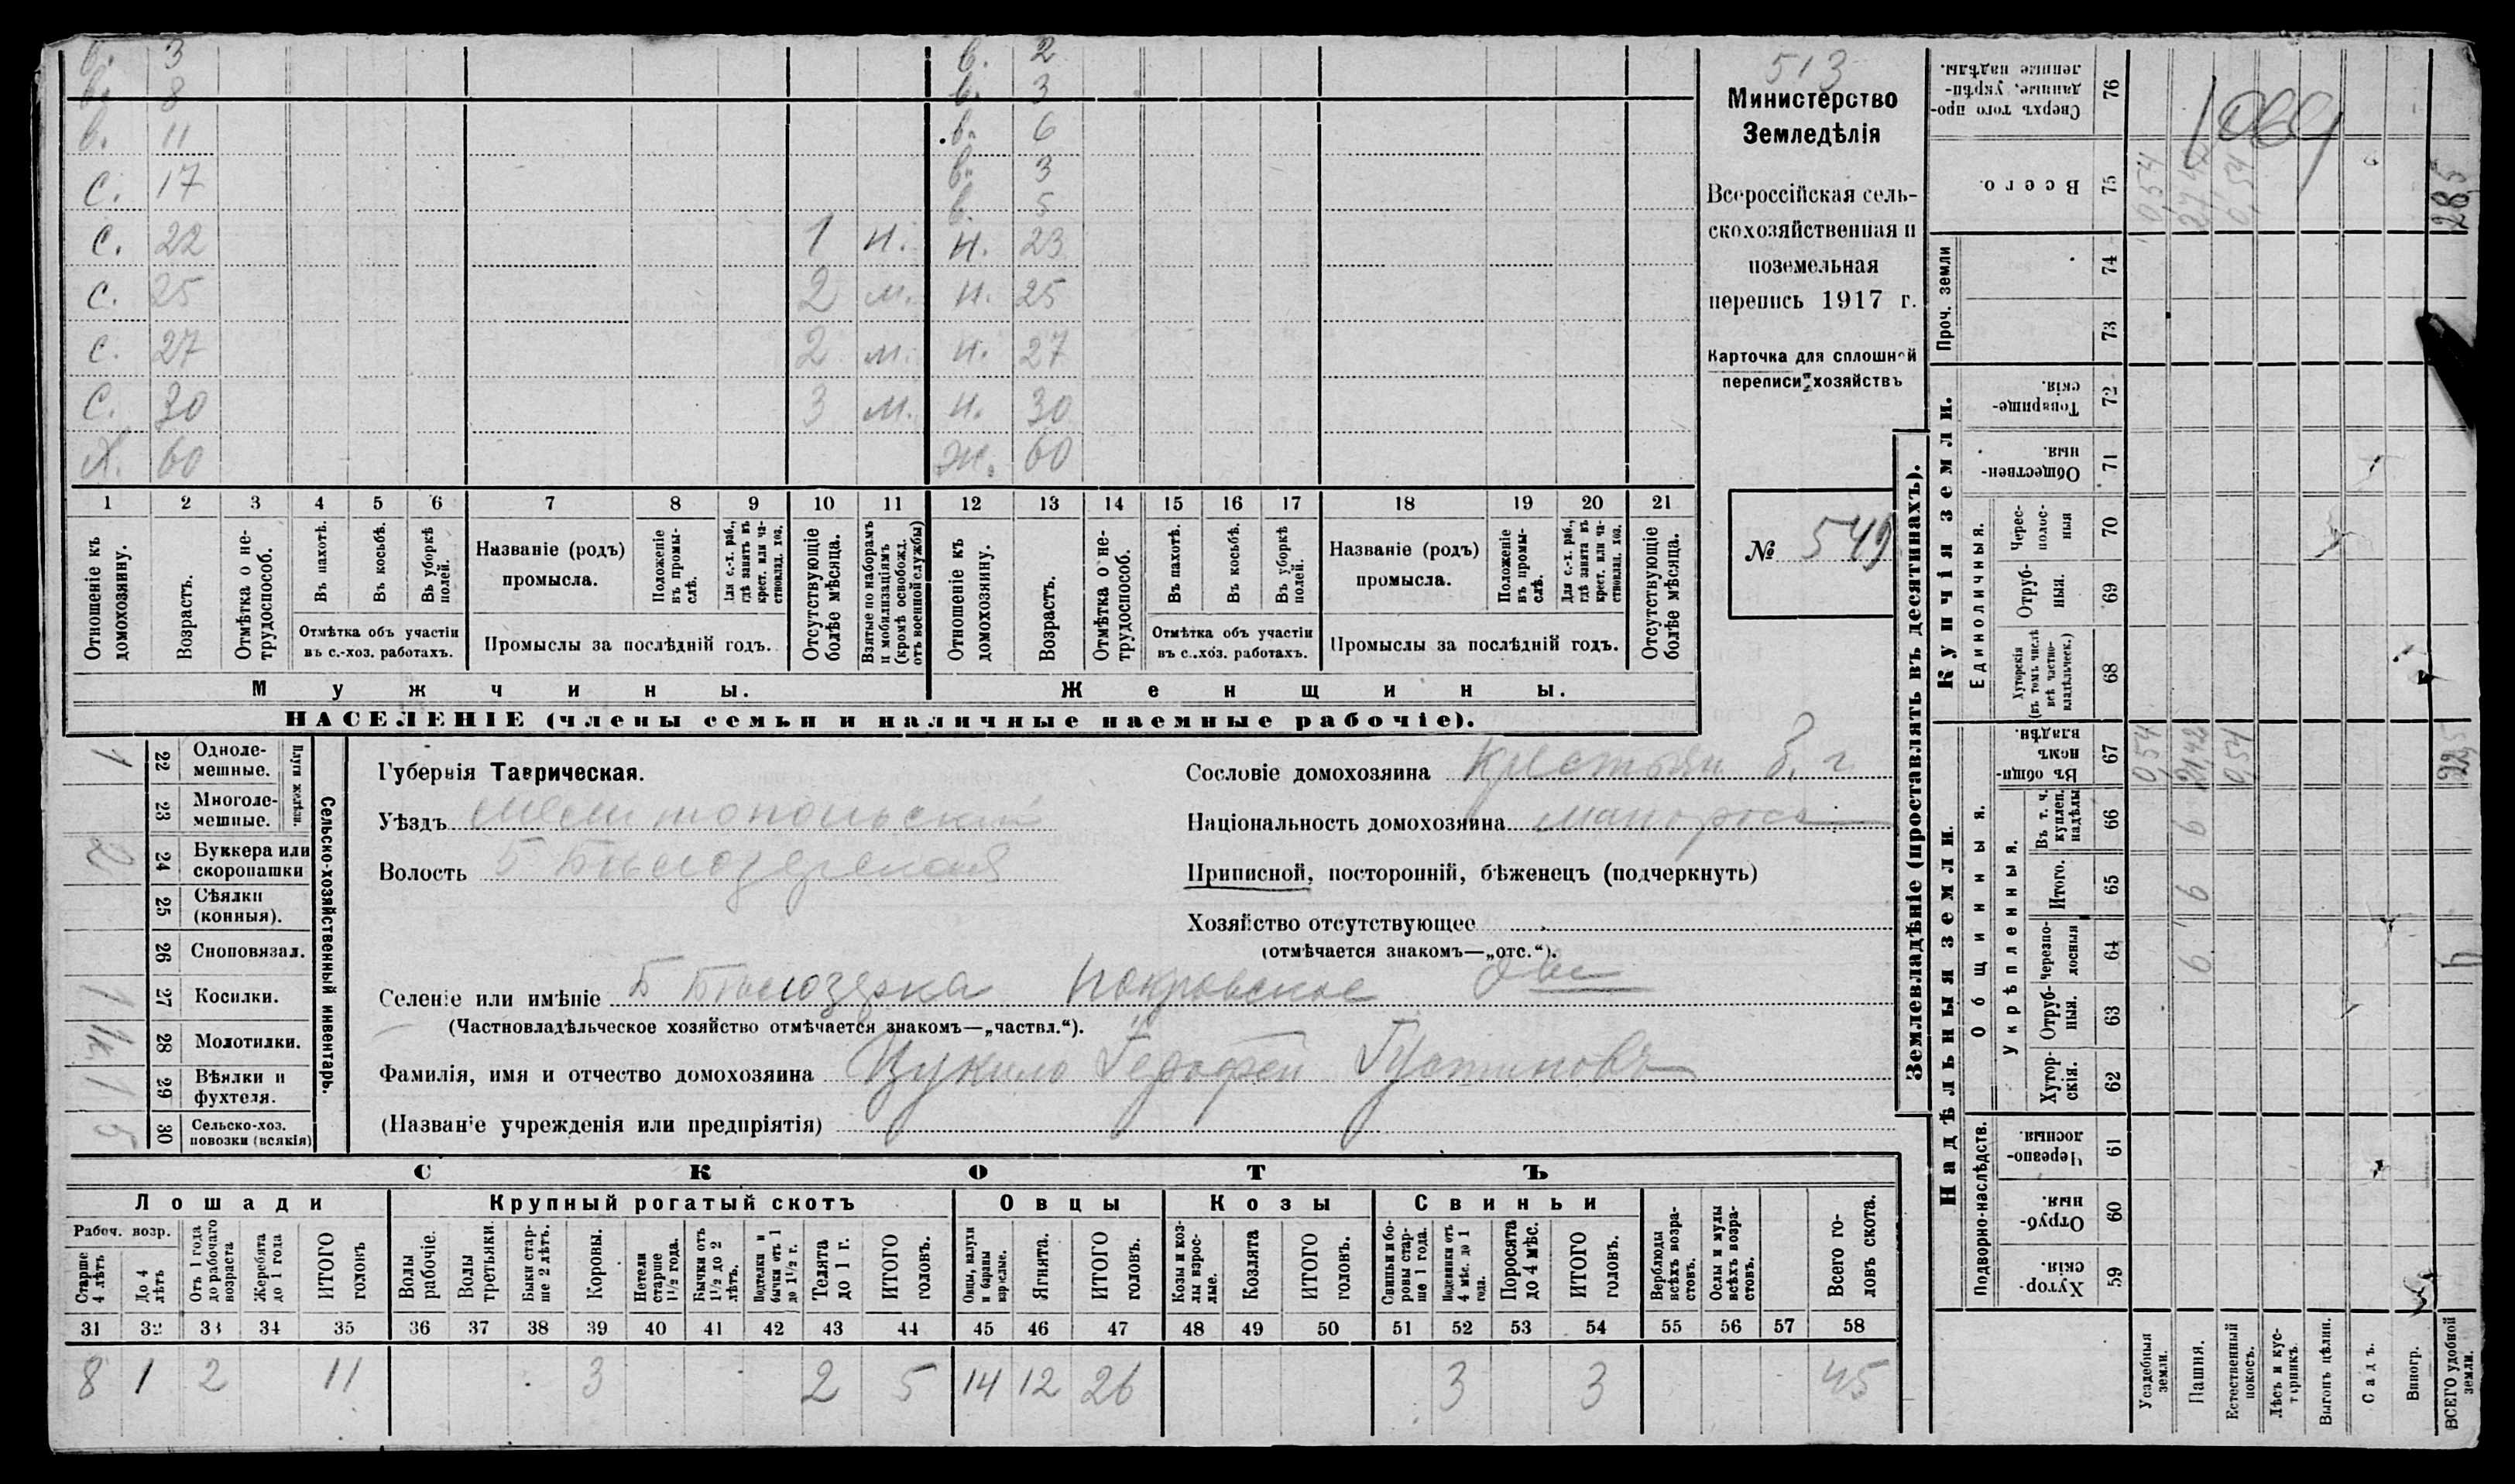 в. 3 в. 2
в. 8 в. 3
в. 11 в. 6
с. 17 в. 3
в. 5
с. 22 1 н. н. 23
с. 25 2 м. н. 25
с. 27 2 м. н. 27
с. 30 3 м. н. 30
Х. 60 ж. 60
1 2 3 4 5 6 7 8 9 10 11 12 13 14 15 16 17 18 19 20 21
Отношеніе къ домохозяину.
Возрастъ.
Отмѣтка о не-трудоспособ.
Въ пахотѣ.
Въ косьбѣ.
Въ уборкѣ полей.
Отмѣтка объ участіи
въ с.-хоз. работахъ.
Названіе (родъ)
промысла.
Положеніе въ промы-слѣ.
Для с.-х. раб., гдѣ занятъ въ крест. или ча-стновлад. хоз.
Промыслы за послѣдній годъ.
Отсутствующіе болѣе мѣсяца.
Взятые по наборамъ и мобилизаціямъ (кромѣ освобожд. отъ военной службы)
Отношеніе къ домохозяину.
Возрастъ.
Отмѣтка о не-трудоспособ.
Въ пахотѣ.
Въ косьбѣ.
Въ уборкѣ полей.
Отмѣтка объ участіи
въ с.-хоз. работахъ.
Названіе (родъ)
промысла.
Положеніе въ промы-слѣ.
Для с.-х. раб., гдѣ занята въ крест. или ча-стновлад. хоз.
Промыслы за послѣдній годъ.
Отсутствующіе болѣе мѣсяца.
Мужчины. Женщины.
НАСЕЛЕНІЕ (члены семьи и наличные наемные рабочіе).
513
Министерство
Земледѣлія
Всероссійская сель-
скохозяйственная и
поземельная
перепись 1917 г.
Карточка для сплошной
переписи хозяйствъ
№ 549
1 22 Одноле-мешные.
23 Многоле-мешные.
Плуги желѣзн.
2 24 Буккера или скоропашки
25 Сѣялки (конныя).
26 Сноповязал.
1 27 Косилки.
1к. 28 Молотилки.
1 29 Вѣялки и фухтеля.
5 30 Сельско-хоз. повозки (всякія)
Сельско-хозяйственный инвентарь.
Губернія Таврическая.
Уѣздъ Мелитопольскій
Волость Б Бѣлозерская
Сословіе домохозяина крестьян
Національность домохозяина малоросс
Приписной, посторонній, бѣженецъ (подчеркнуть)
Хозяйство отсутствующее
(отмѣчается знакомъ—„отс.“).
Селеніе или имѣніе Б Бѣлозерка Покровское
(Частновладѣльческое хозяйство отмѣчается знакомъ—„частвл.“).
Фамилія, имя и отчество домохозяина Цукило
(Названіе учрежденія или предпріятія)
СКОТЪ
Лошади Крупный рогатый скотъ Овцы Козы Свиньи
Рабоч. возр.
Старше 4 лѣтъ
До 4 лѣтъ
Отъ 1 года до рабочаго возраста
Жеребята до 1 года
ИТОГО головъ
Волы рабочіе.
Волы третьяки.
Быки стар-ше 2 лѣтъ.
Коровы.
Нетели старше 1½ года.
Бычки отъ 1½ до 2 лѣтъ.
Подтелки и бычки отъ 1 до 1½ г.
Телята до 1 г.
ИТОГО головъ.
Овцы, валухи и бараны взрослые.
Ягнята.
ИТОГО головъ.
Козы и коз-лы взрос-лые.
Козлята
ИТОГО головъ.
Свиньи и бо-ровы стар-ше 1 года.
Подсвинки отъ 4 мѣс. до 1 года.
Поросята до 4 мѣс.
ИТОГО головъ.
Верблюды всѣхъ возра-стовъ.
Ослы и мулы всѣхъ возра-стовъ.
Всего го-ловъ скота.
31 32 33 34 35 36 37 38 39 40 41 42 43 44 45 46 47 48 49 50 51 52 53 54 55 56 57 58
8 1 2 11 3 2 5 14 12 26 3 3 45
Землевладѣніе (проставлять въ десятинахъ).
Купчія земли.
Надѣльныя земли.
Сверхъ того про-данные, укрѣп-ленные надѣлы. 76
Всего. 75 0,54 0,54 28,5
Проч. земли 74 73
Товарище-скія. 72
Обществен-ныя. 71
Единоличныя.
Черес-полос-ныя 70
Отруб-ныя. 69
Хуторскія (въ томъ числѣ всѣ частно-владѣльческ.) 68
Общинныя.
Въ общин-номъ владѣн. 67 0,54 21,42 0,54 22,5
Укрѣпленныя.
Въ т. ч. куплен. надѣлы 66 6
Итого. 65 6
Черезпо-лосныя 64 6 6
Отруб-ныя. 63
Хутор-скія. 62
Подворно-наслѣдств.
Черезпо-лосныя. 61
Отруб-ныя. 60
Хутор-скія. 59
Усадебныя земли.
Пашня.
Естественный покосъ.
Лѣсъ и кус-тарникъ.
Выгонъ цѣлин.
Садъ.
Виногр.
ВСЕГО удобной земли.